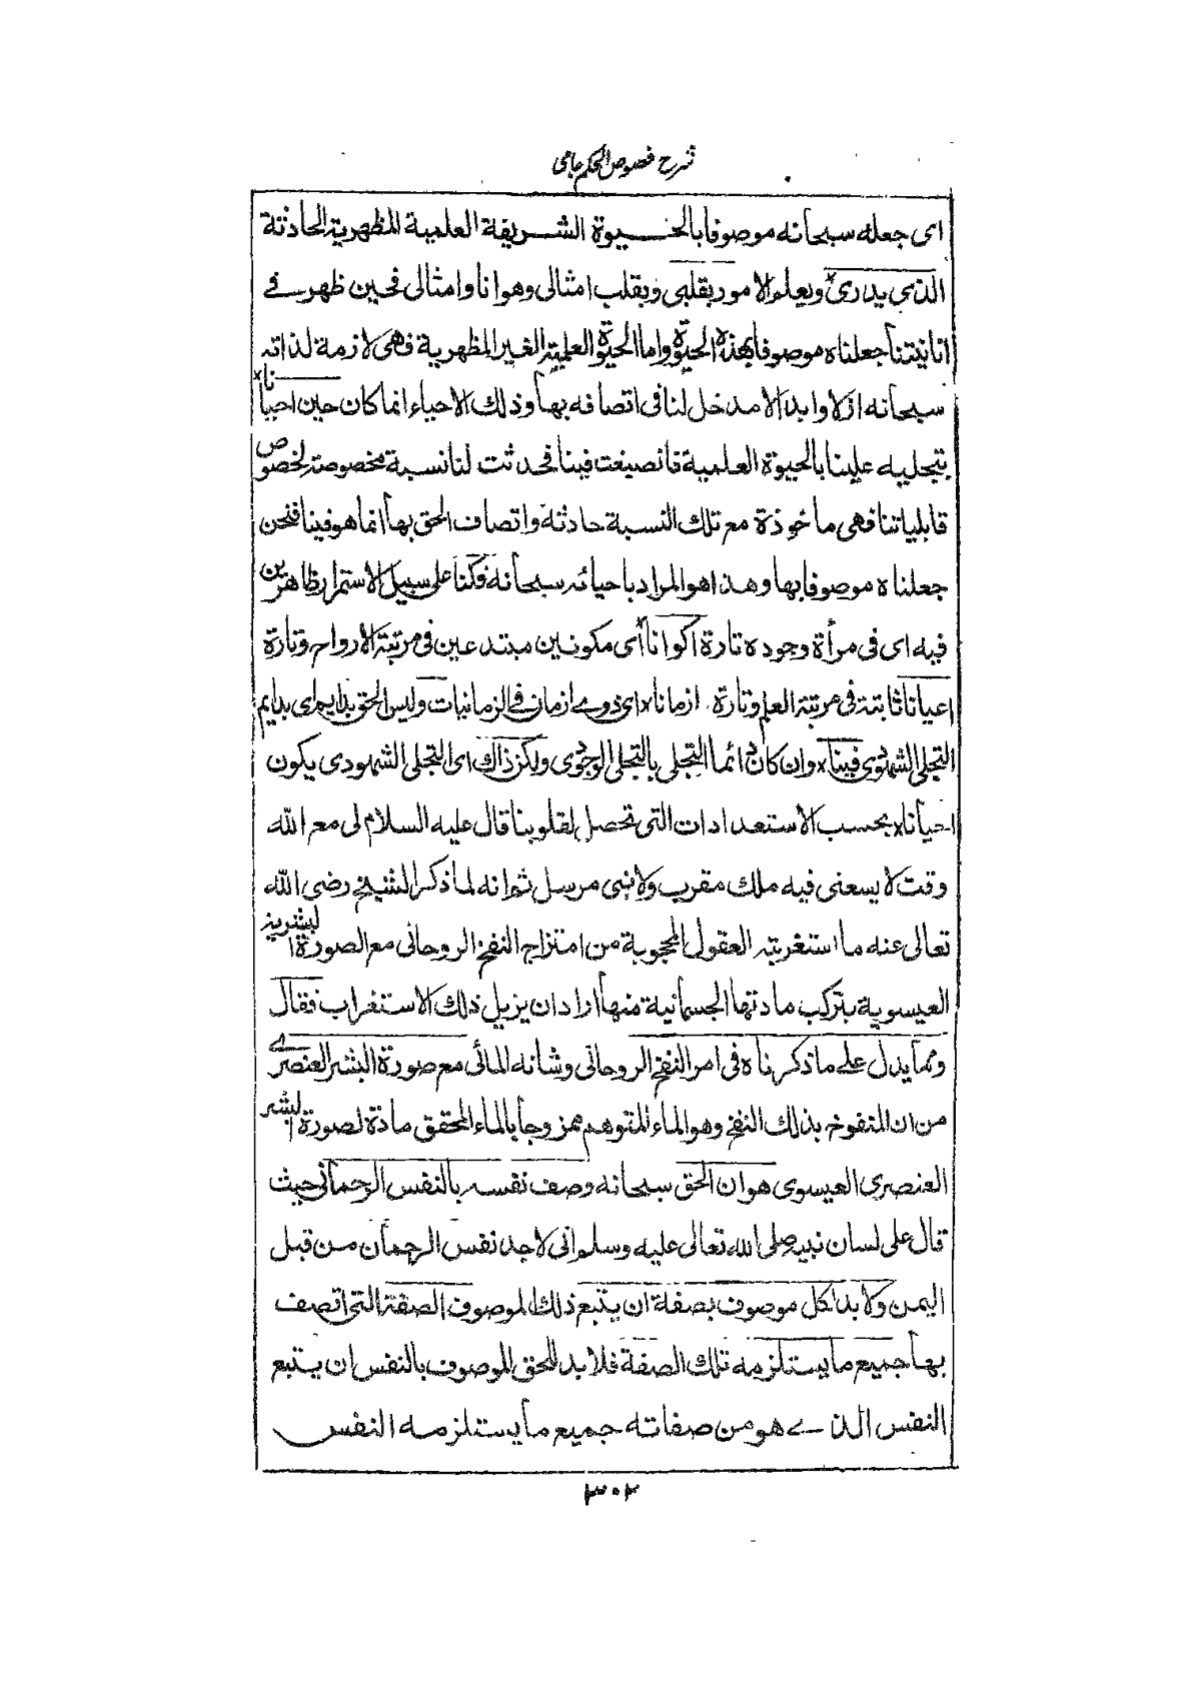 شرح فصوص الحكم جامى
اى جعله سبحانه موصوفا بالحيوة الشريفة العلمية المظهرية الحادثة
الذى يدرى ويعلم الامور بقلبى وبقلب امثالى وهو انا وامثالى فحين ظهر فے
انانيتنا جعلناه موصوفا بهذه الحيوة واما الحيوة العلمية الغير المظهرية فهى لازمة لذاته
سبحانه ازلا وابدا لا مدخل لنا فى اتصافه بها وذلك الاحياء انما كان حين احيانا
بتجليه علينا بالحيوة العلمية فانصبغت فينا فحدثت لنا نسبة مخصوصة لخصوص
قابلياتنا فهى ماخوذة مع تلك النسبة حادثة واتصاف الحق بها انما هو فينا فنحن
جعلناه موصوفا بها وهذا هو المراد باحيائه سبحانه فكنا على سبيل الاستمرار ظاهرين
فيه اى فى مرأة وجوده تارة اكوانا اى مكونين مبتدعين فى مرتبة الارواح وتارة
اعيانا ثابتة فى مرتبة العلم وتارة ازمانا اى ذوے ازمان فے الزمانيات وليس الحق بدايم اى بدايم
التجلى الشهودى فينا وان كان دائما التجلى بالتجلى الوجودى ولكن ذاك اى التجلى الشهودى يكون
احيانا بحسب الاستعدادات التى تحصل لقلوبنا قال عليه السلام لى مع الله
وقت لا يسعنى فيه ملك مقرب ولا نبى مرسل ثم انه لما ذكر الشيخ رضى الله
تعالى عنه ما استغربته العقول المحجوبة من امتزاج النفخ الروحانى مع الصورة البشرية
العيسوية بتركب مادتها الجسمانية منها اراد ان يزيل ذلك الاستغراب فقال
ومما يدل علے ما ذكرناه فى امر النفخ الروحانى وشانه المائى مع صورة البشر العنصرے
من ان المنفوخ بذلك النفخ وهو الماء المتوهم ممزوجا بالماء المحقق مادة لصورة البشر
العنصرى العيسوى هو ان الحق سبحانه وصف نفسه بالنفس الرحمانى حيث
قال على لسان نبيه صلى الله تعالى عليه وسلم انى لاجد نفس الرحمان من قبل
اليمن ولا بد لكل موصوف بصفة ان يتبع ذلك الموصوف الصفة التى اتصف
بها جميع ما يستلزمه تلك الصفة فلا بد للحق الموصوف بالنفس ان يتبع
النفس الذے هو من صفاته جميع ما يستلزمه النفس
٣٠٢